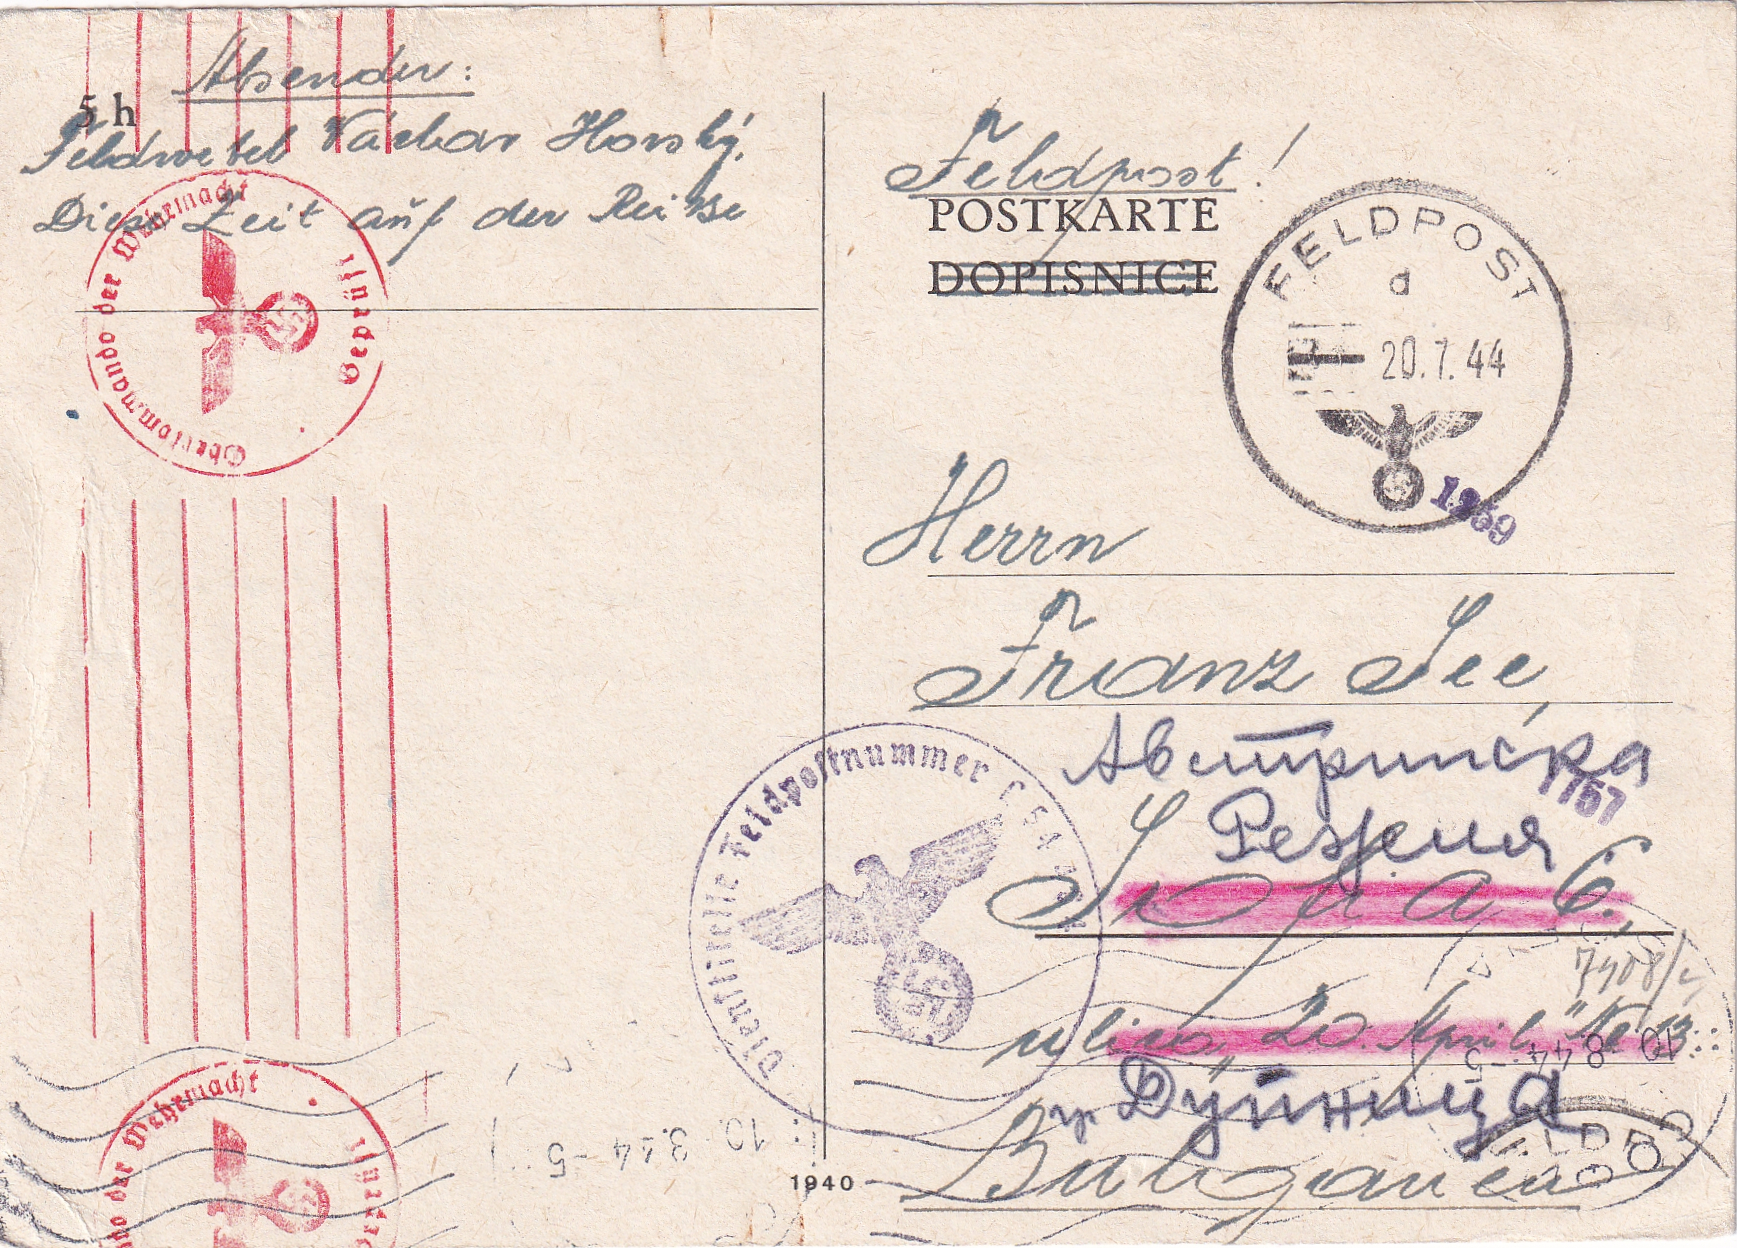 Absender:
5 h
Feldwebel Václav Horský.
Diese Zeit auf der Reise
Feldpost!
POSTKARTE
DOPISNICE
FELDPOST
d
20.7.44
1259
Oberkommando der Wehrmacht
Geprüft
Herrn
Franz See
Австрийска
1757
Режия
Sofia 6.
7408/
ulica „20. April“ No 13
гр. Дупница
Bulgarien
Dienststelle Feldpostnummer
10. 8.44 - 5
10. 8.44 - 5
1940
Oberkommando der Wehrmacht